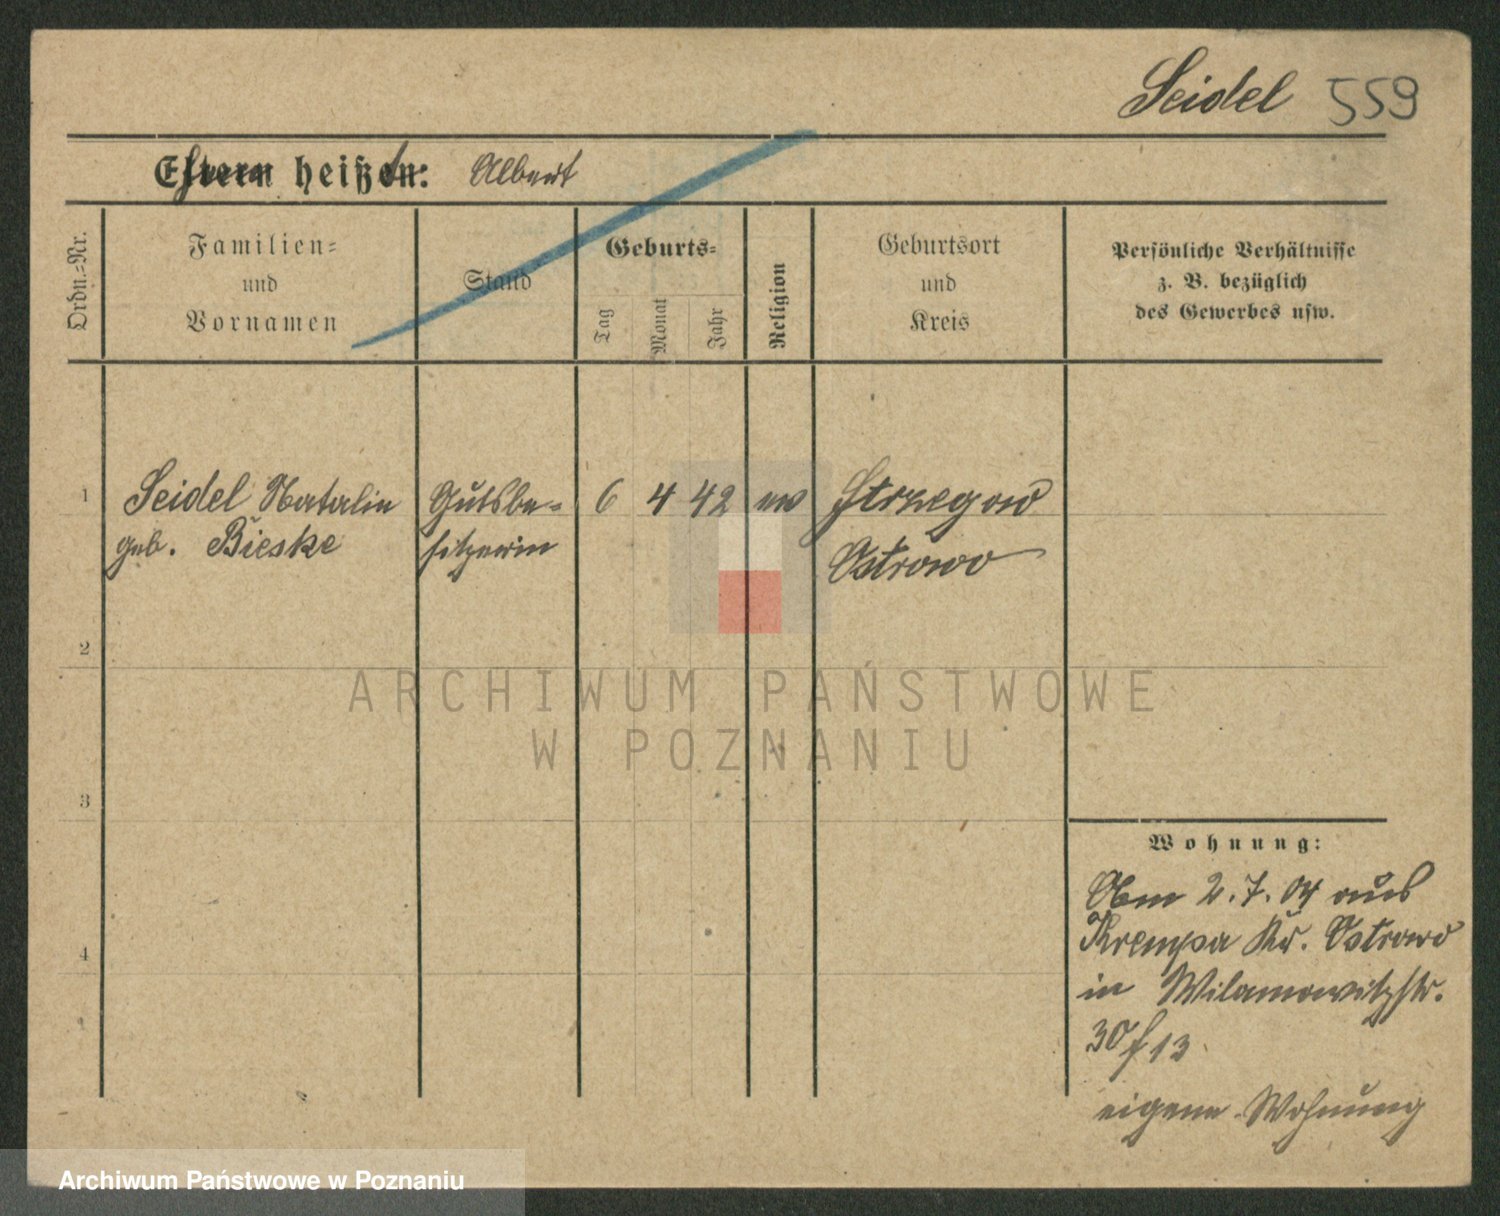 Seidel 559
Eltern heißen: Albert
Ordn.=Nr.
Familien=
und
Vornamen
Stand
Geburts=
Tag
Monat
Jahr
Religion
Geburtsort
und
Kreis
Persönliche Verhältnisse
z. B. bezüglich
des Gewerbes usw.
1 Seidel Natalie Gutsbe= 6 4 42 ev Strzegow
geb. Bieske sitzerin Ostrowo
2
3
4
Wohnung:
Am 2.7.04 aus
Krempa Kr. Ostrowo
in Wilamowitzstr.
30/13
eigene Wohnung
ARCHIWUM PAŃSTWOWE
W POZNANIU
Archiwum Państwowe w Poznaniu